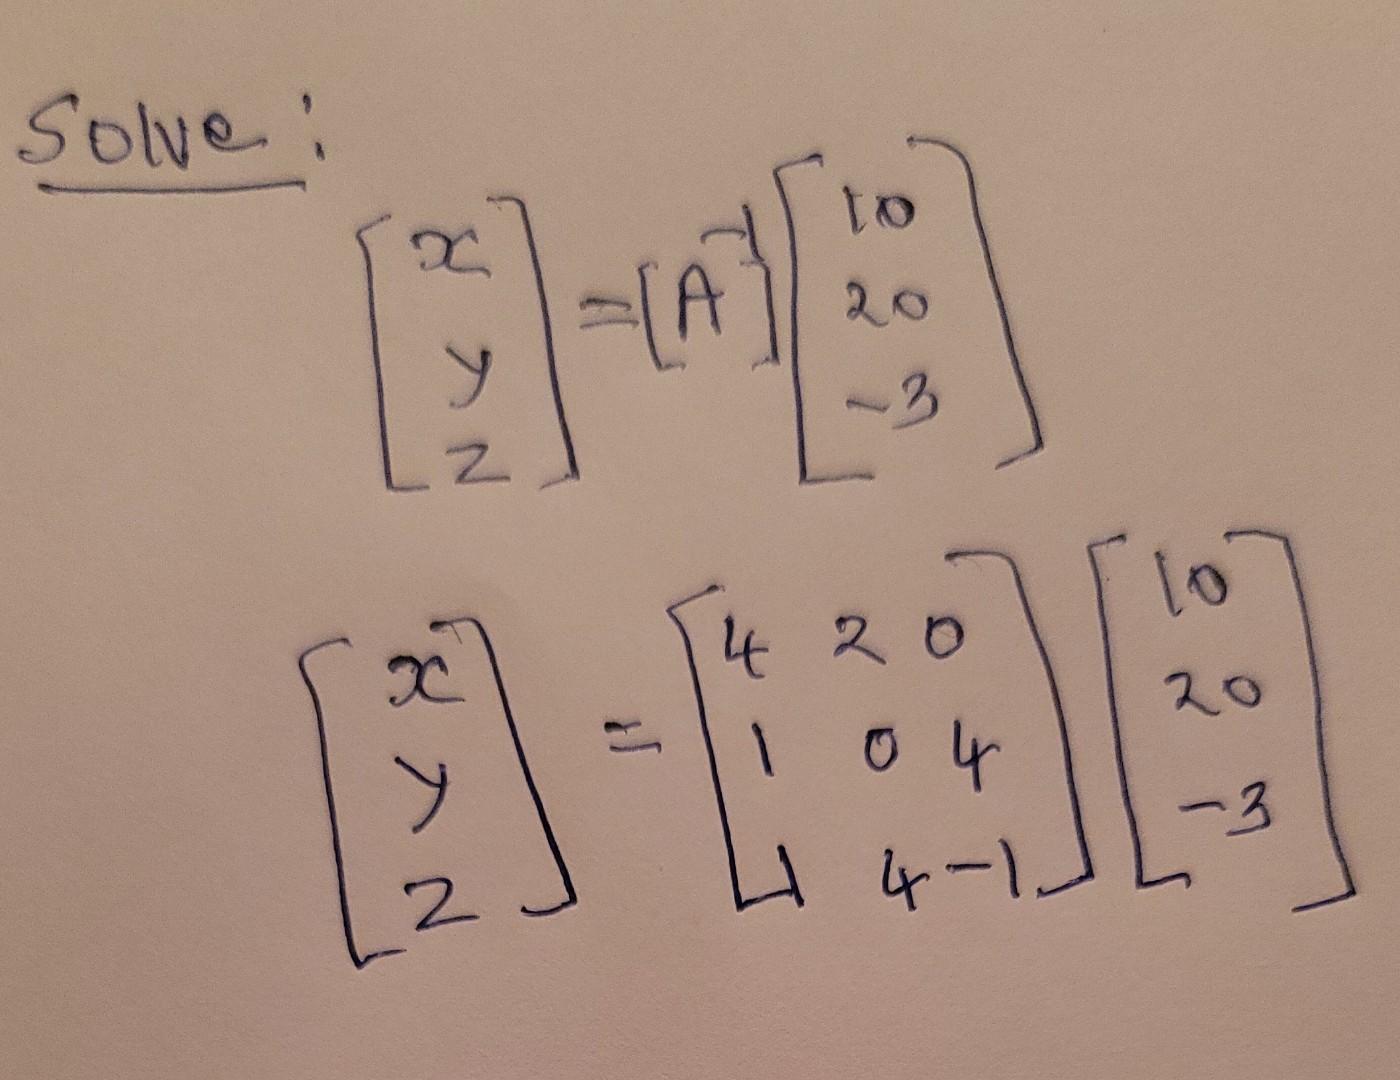 Solve:
[x y z] = [A⁻¹] [10 20 -3]
[x y z] = [4 2 0 1 0 4 1 4 -1] [10 20 -3]